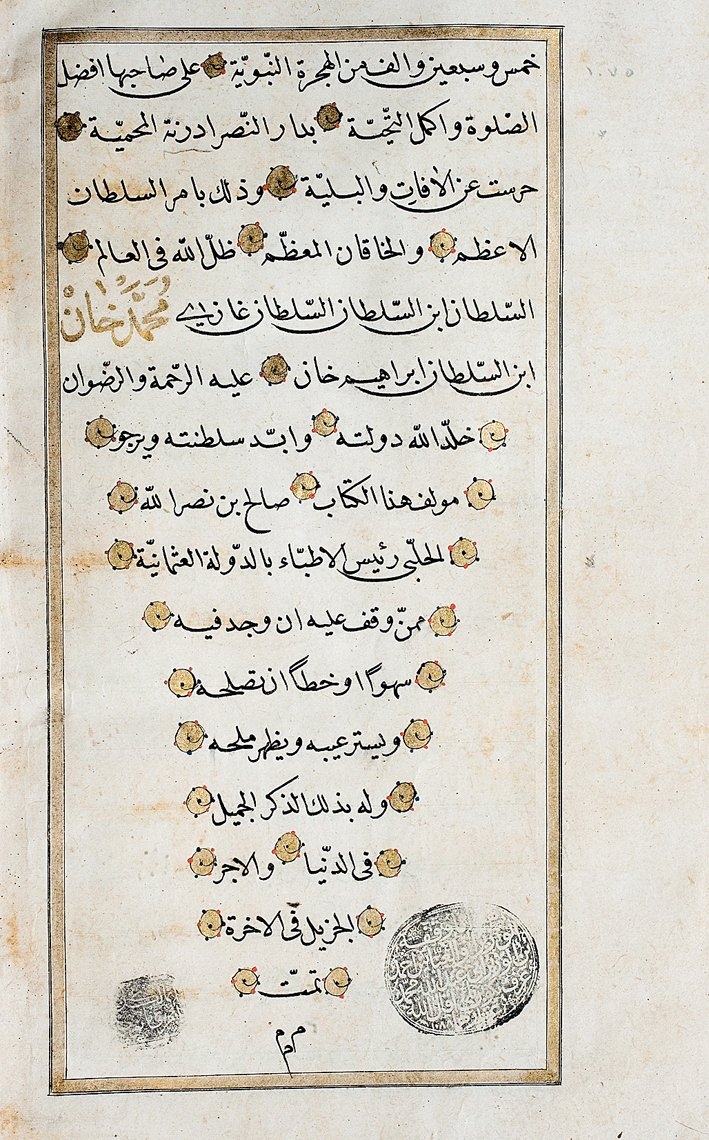 خمس وسبعين والف من الهجرة النبويّة على صاحبها افضل
١٠٧٥
الصلوة واكمل التحيّة بدار النصر ادرنة المحميّة
حرست عن الافات والبلية وذلك بامر السلطان
الاعظم والخاقان المعظّم ظلّ الله فى العالم
السلطان ابن السّلطان السّلطان غازى محمّد خان
ابن السلطان ابراهيم خان عليه الرحمة والرضوان
خلّد الله دولته وابّد سلطنته ويرجو
مولف هذا الكتاب صالح بن نصر الله
الحلبّى رئيس الاطبّاء بالدّولة العثمانيّة
ممنّ وقف عليه ان وجد فيه
سهوًا او خطأ ان يصلحه
ويستر عيبه ويظهر ملحه
وله بذلك الذكر الجميل
فى الدنّيا والاجر
الجزيل فى الاخرة
تمّت
م م م